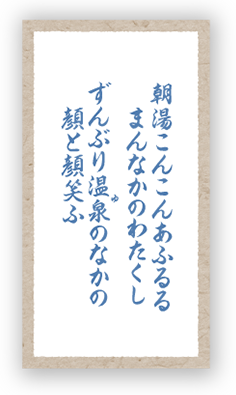 朝湯こんこんあふるる
まんなかのわたくし
ずんぶり温泉のなかの
ゆ
顔と顔笑ふ